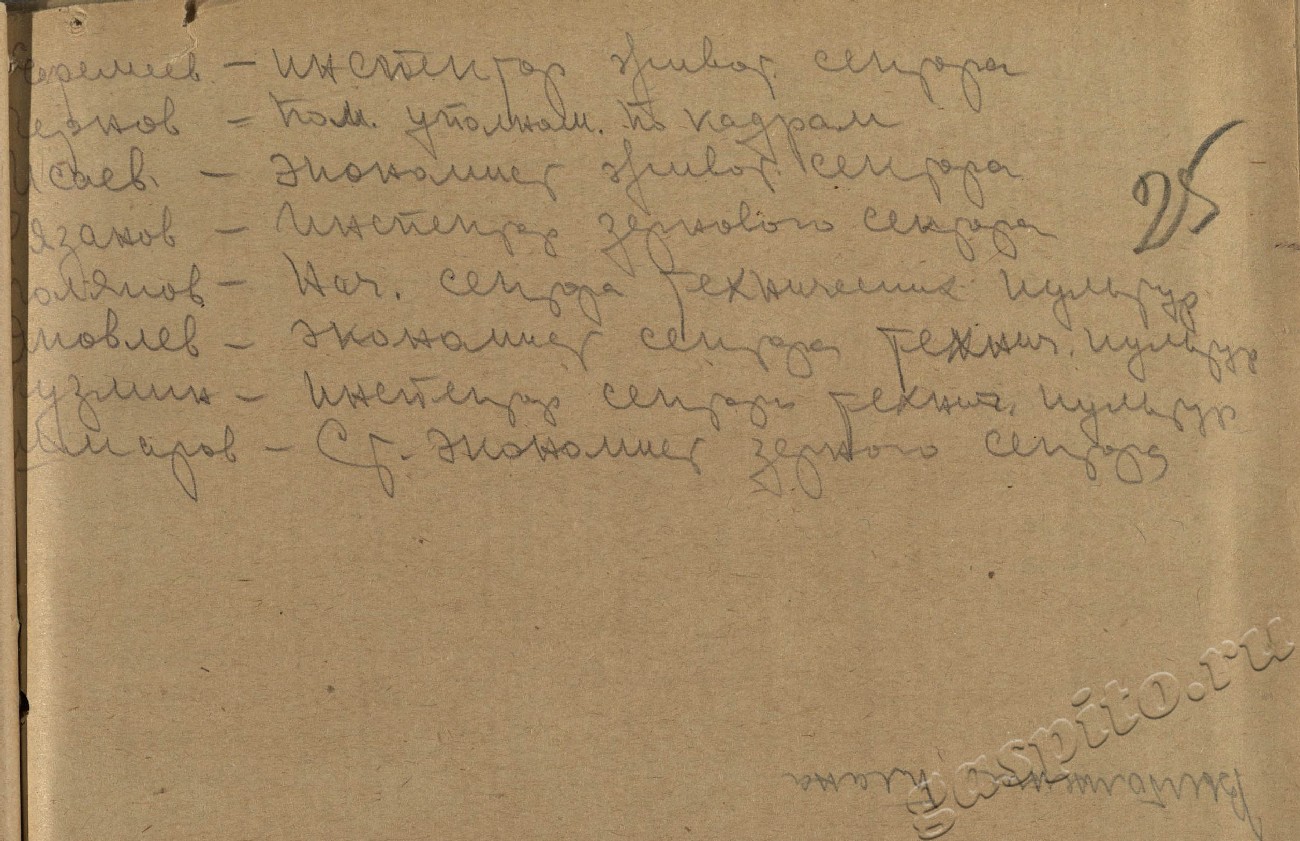 Еремеев – инспектор живот. сектора
Чернов – Пом. уполном. по кадрам
Исаев. – экономист живот. сектора
Рязанов – Инспектор зернового сектора
25
– Нач. сектора технических культур
– экономист сектора технич. культур
Кузмин – Инспектор сектора технич. культур
– Ст. экономист зерного сектора
gaspito.ru
Выполнение плана